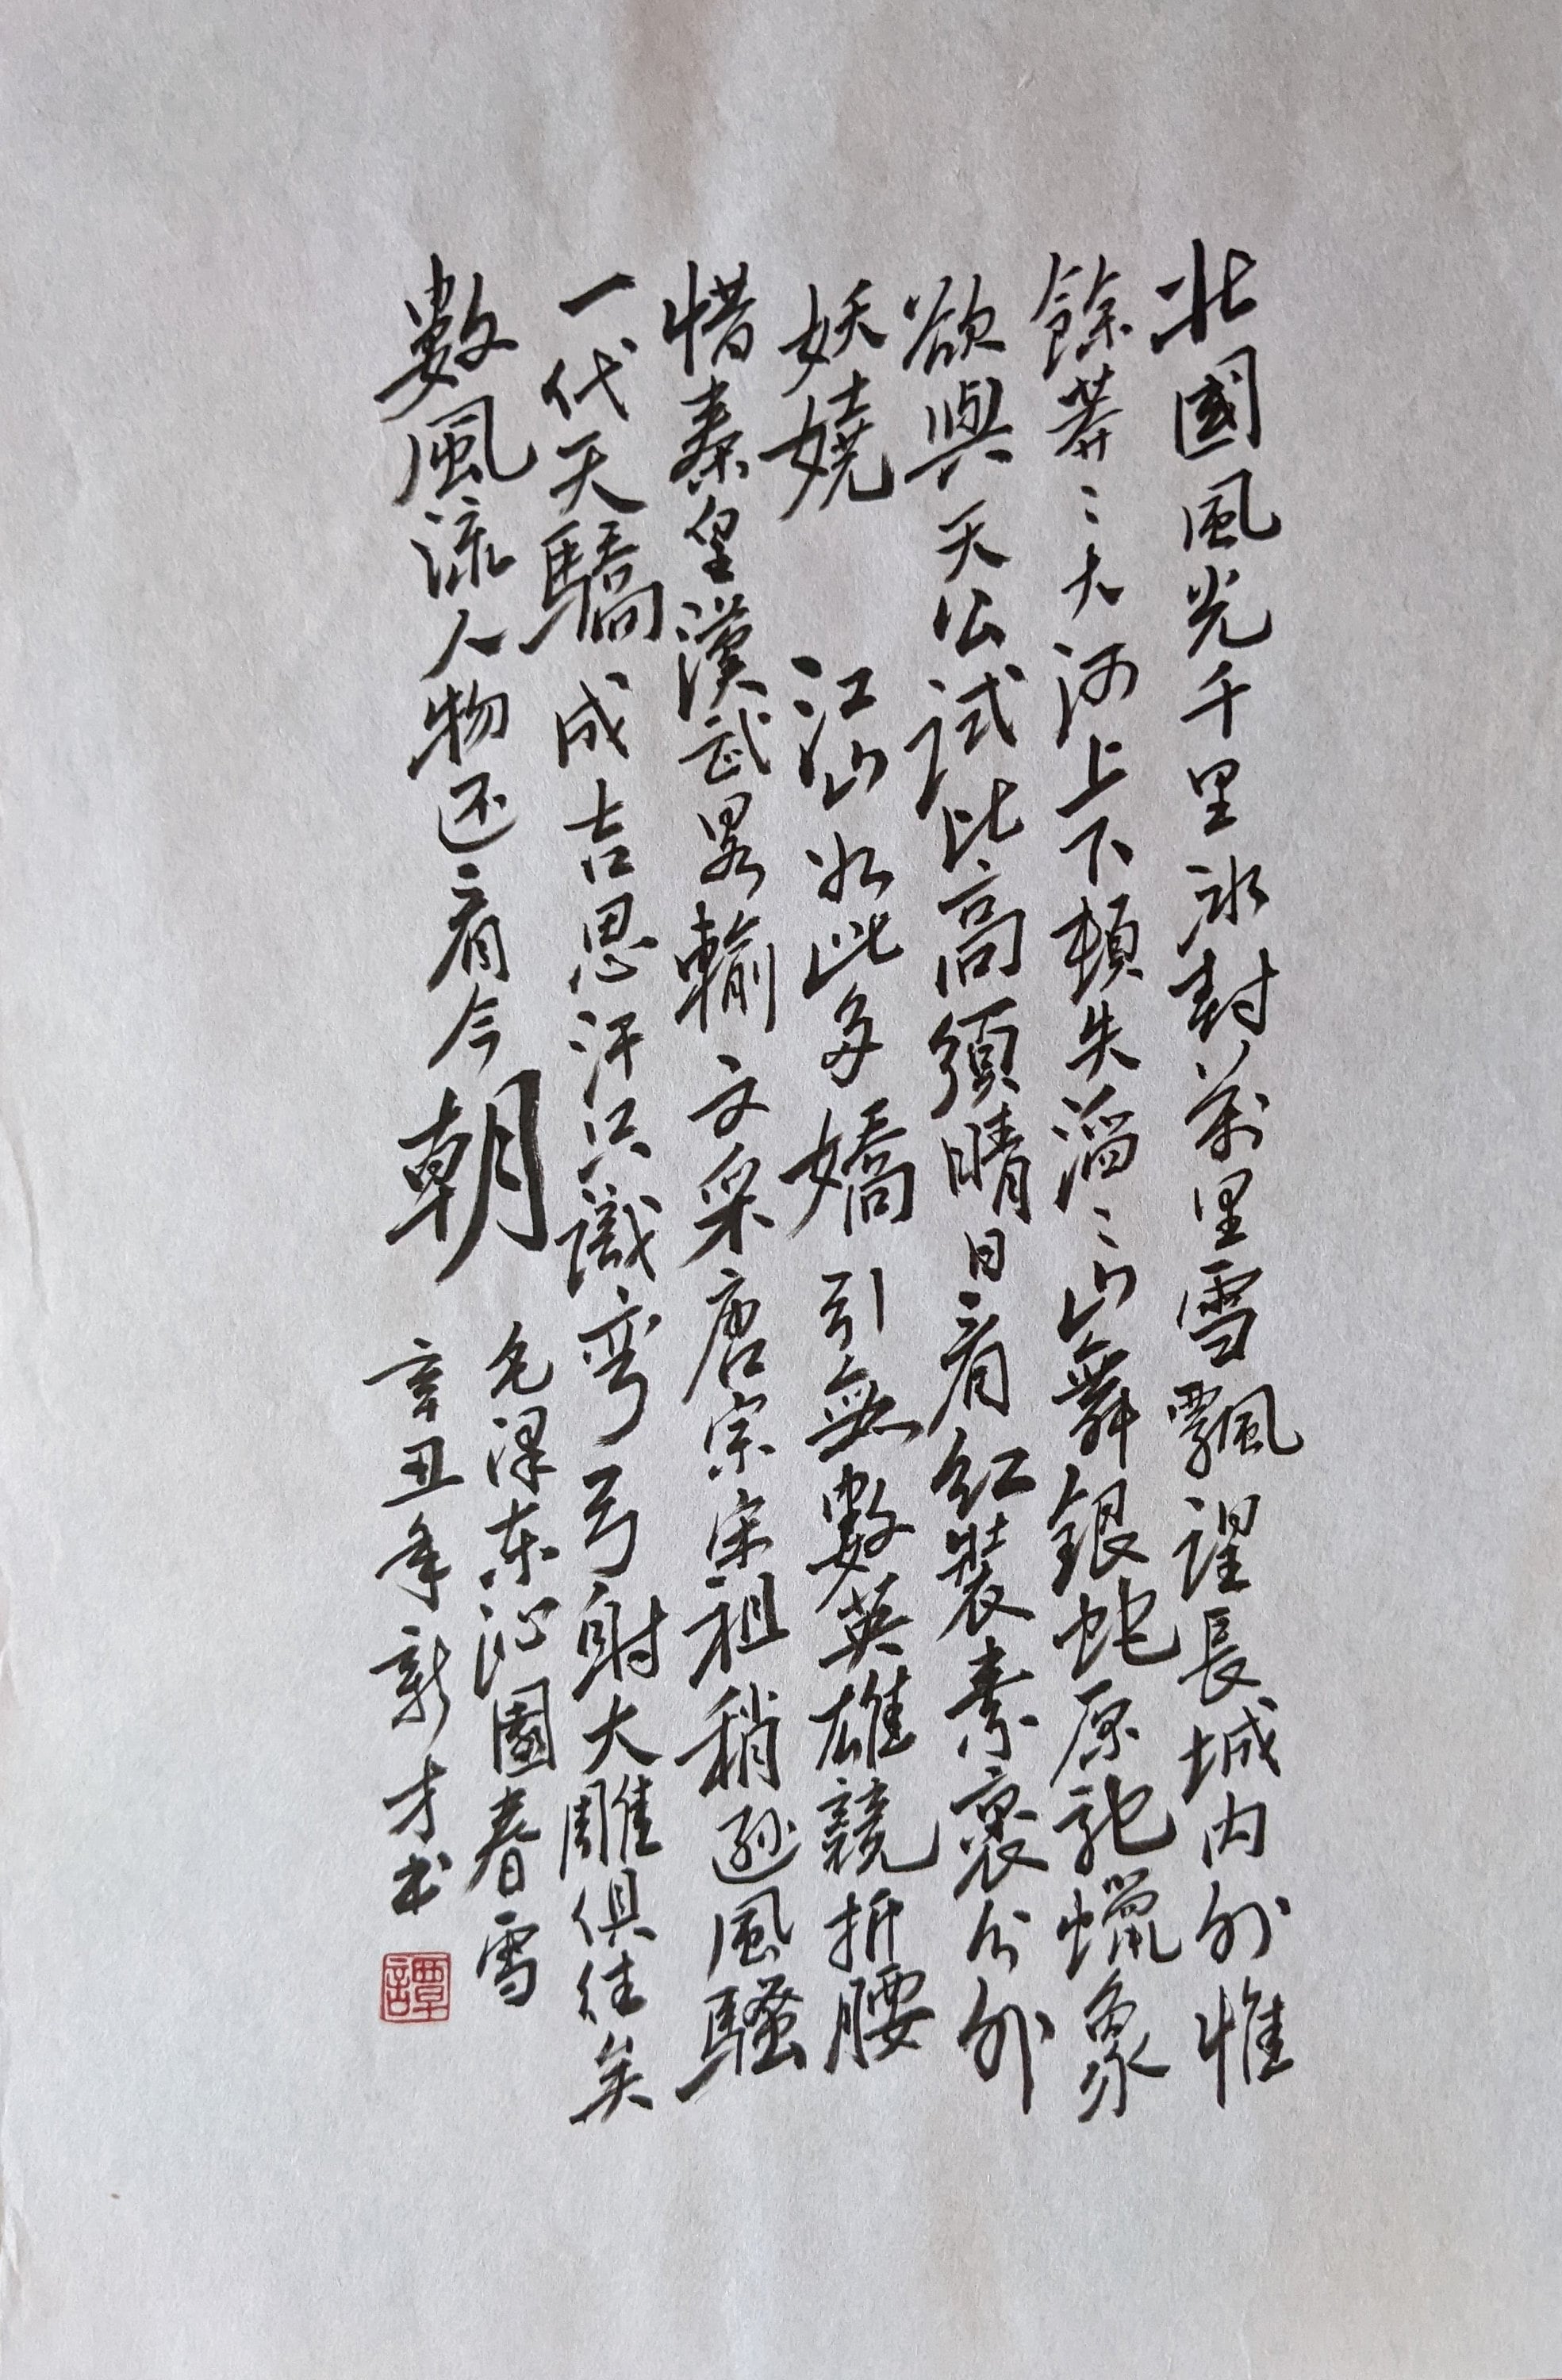 北國風光千里冰封萬里雪飄望長城内外惟
餘莽〻大河上下頓失滔〻山舞銀蛇原馳蠟象
欲與天公試比高須晴日看紅裝素裹分外
妖嬈 江山如此多嬌引無數英雄競折腰
惜秦皇漢武畧輸文采唐宗宋祖稍遜風騷
一代天驕成吉思汗只識彎弓射大雕俱往矣
數風流人物还看今朝
毛澤东沁園春雪
辛丑年新才书
譚